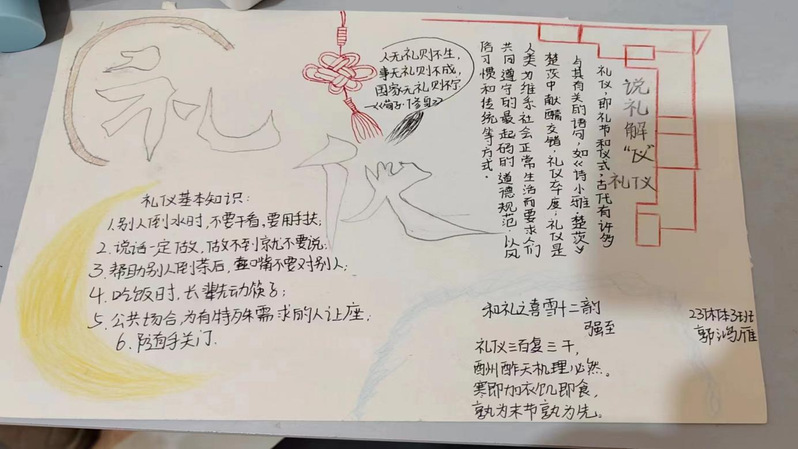 礼仪
人无礼则不生,
事无礼则不成,
国家无礼则不宁
说礼解“仪”
礼仪
礼仪,即礼节和仪式,古代有许多
与其有关的语句,如《诗·小雅·楚茨》
楚茨中献酬交错,礼仪卒度,礼仪是
人类为维系社会正常生活而要求人们
共同遵守的最起码的道德规范,以风
俗习惯和传统等方式.
礼仪基本知识:
1.别人倒水时,不要干看,要用手扶;
2.说话一定做,做不到就不要说.
3.帮助别人倒茶后,壶嘴不要对别人;
4.吃饭时,长辈先动筷子;
5.公共场合为有特殊需求的人让座;
6.随手关门.
和礼之喜雪十二韵
强至
礼仪三百复三千,
酬酢天机理必然。
寒即加衣饥即食,
孰为末节孰为先。
23体本3班
郭鸿雁